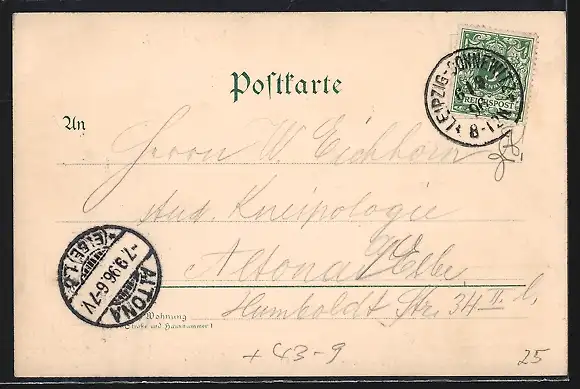 Postkarte
LEIPZIG-CONNEWITZ
REICHSPOST
8-12V
An
Herrn W. Eichhorn
stud. Kneipologie
Altona a/Elbe
Humboldt Str. 34 II. l.
ALTONA
(ELBE) 1.
-7.9.96.6-7V
Wohnung
(Straße und Hausnummer)
+ 43-9
25